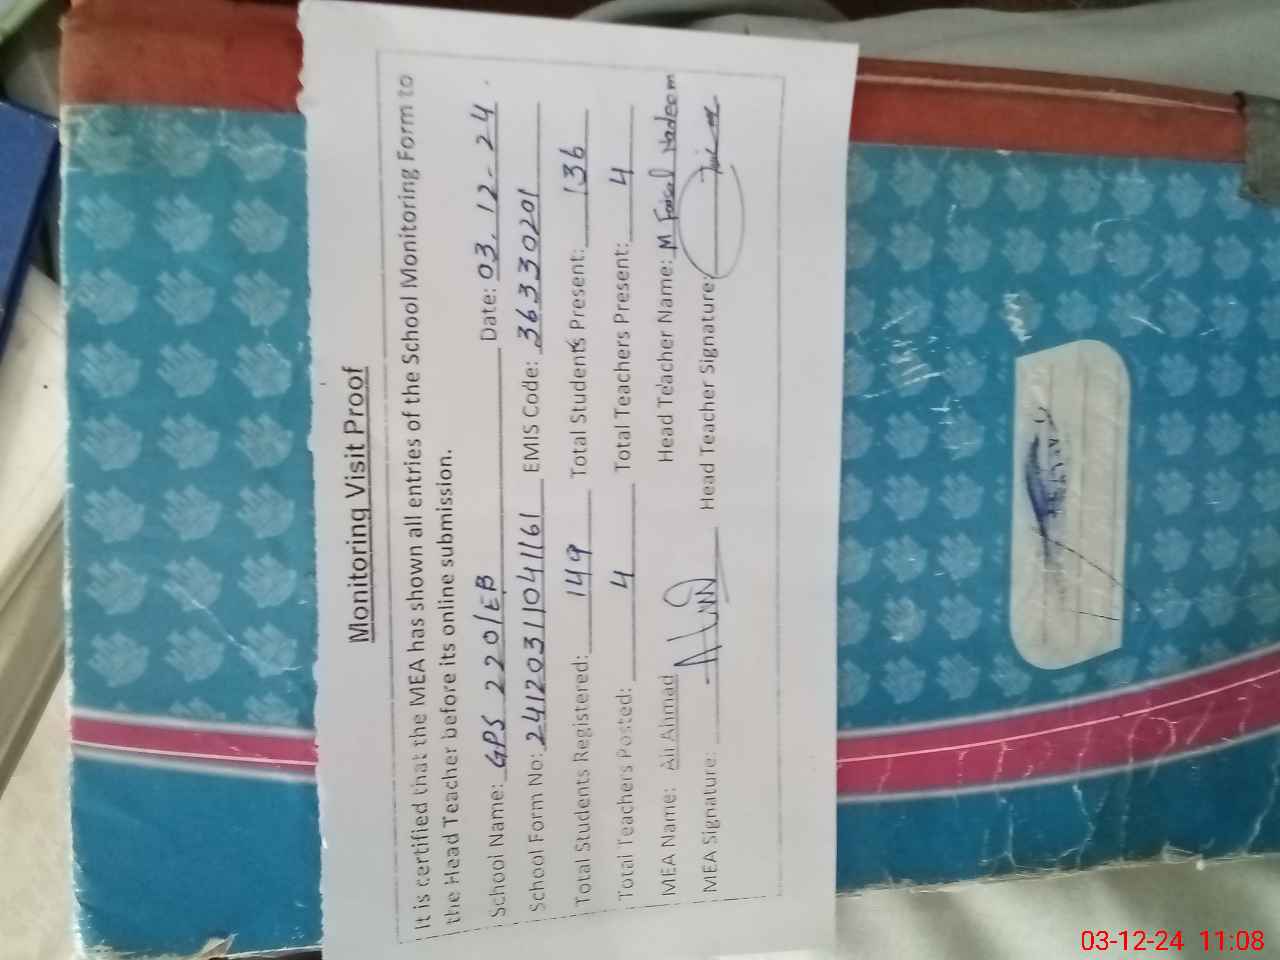 Monitoring Visit Proof
It is certified that the MEA has shown all entries of the School Monitoring Form to
the Head Teacher before its online submission.
School Name: GPS 220/EB Date: 03.12-24
School Form No: 24120311041161 EMIS Code: 36330201
Total Students Registered: 149 Total Students Present: 136
Total Teachers Posted: 4 Total Teachers Present: 4
MEA Name: Ali Ahmad Head Teacher Name: M Faisal Nadeem
MEA Signature: Head Teacher Signature:
03-12-24 11:08